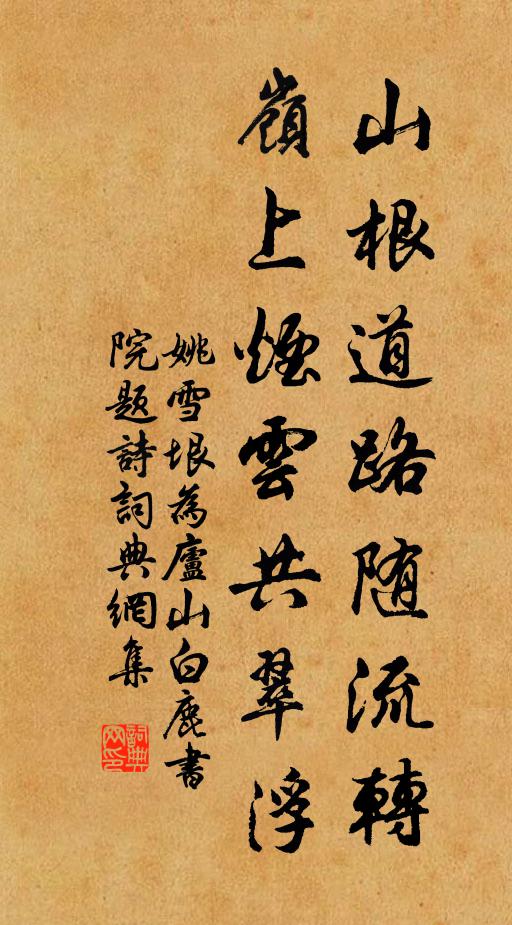 山根道路随流轉
嶺上煙雲共翠浮
姚雪垠為廬山白鹿書
院題詩詞典網集
詞典網印